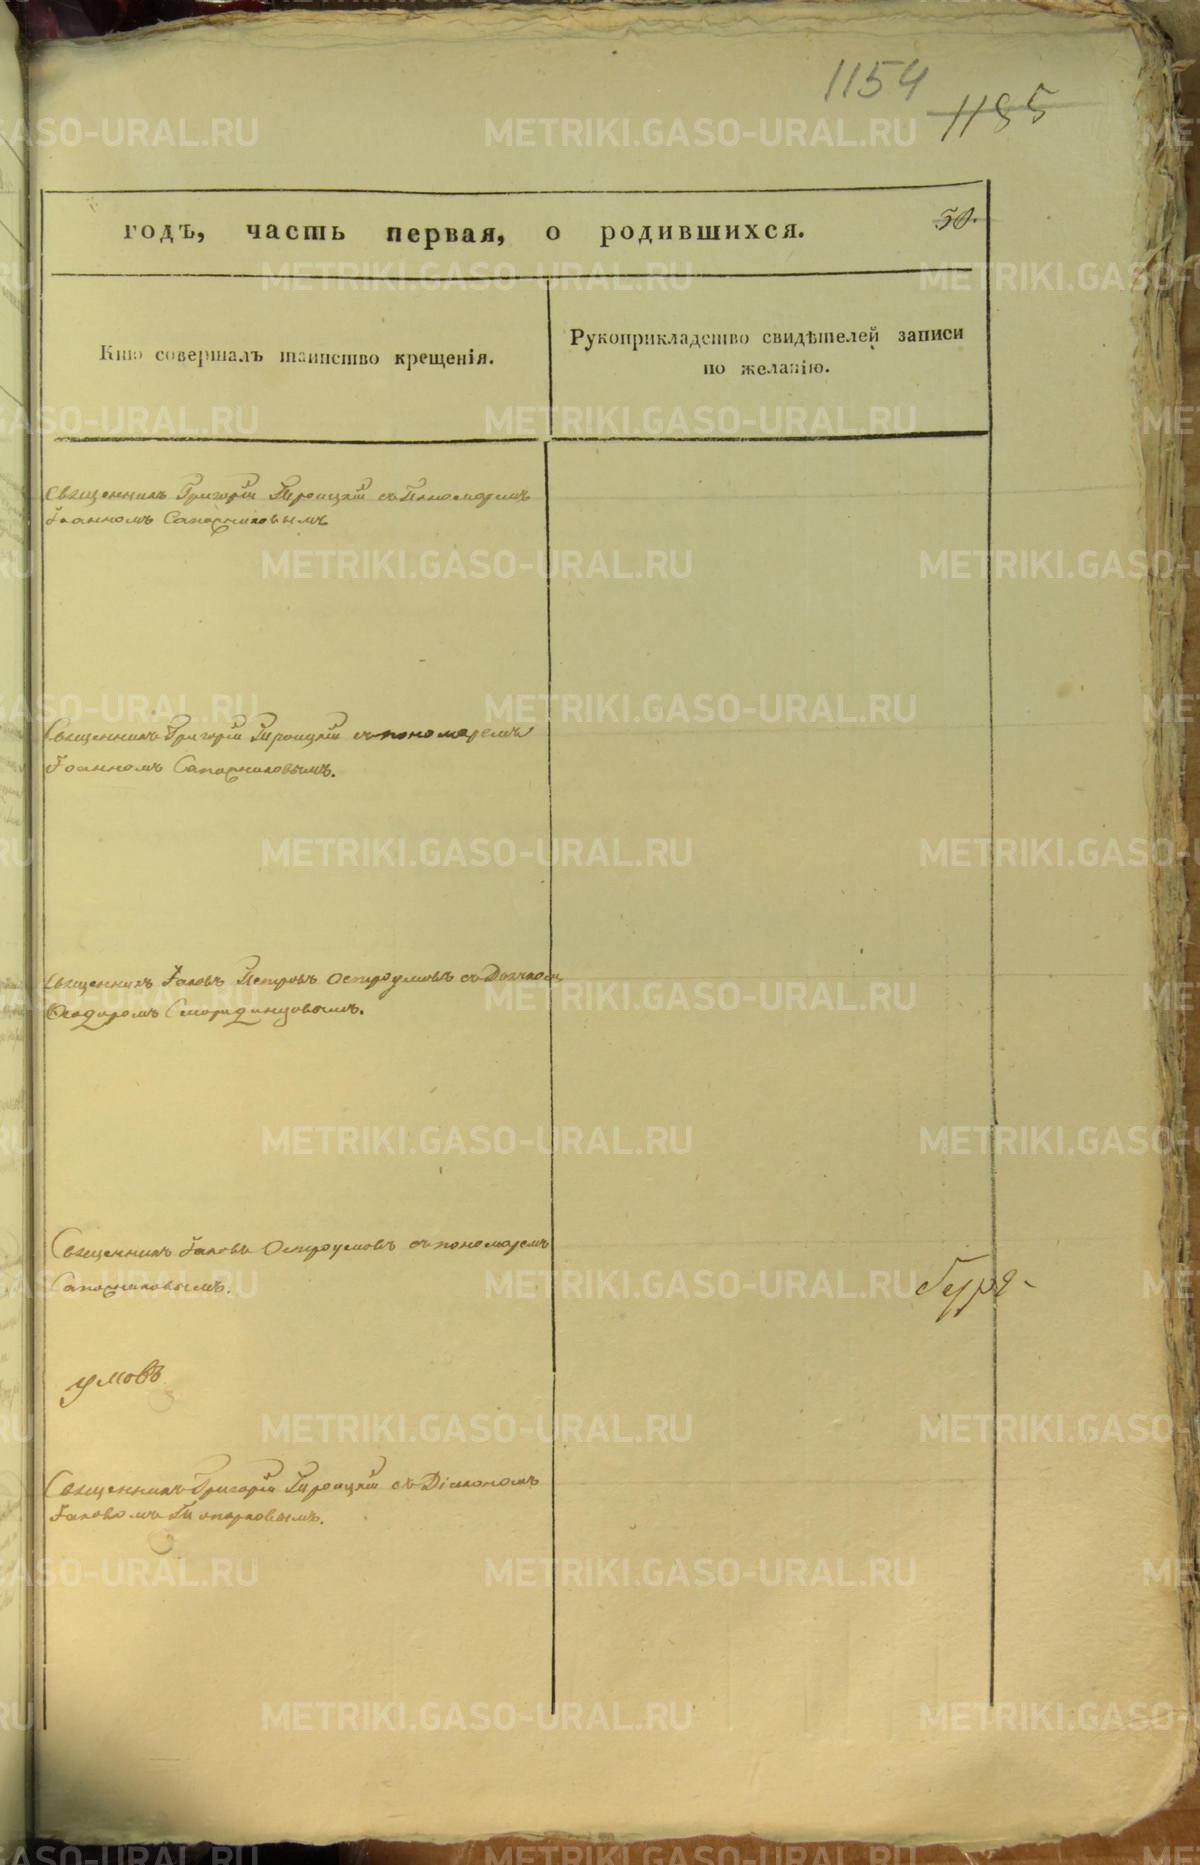 1154
1155
годъ, часть первая, о родившихся.
50.
Кто совершалъ таинство крещенія.
Рукоприкладство свидѣтелей записи
по желанію.
Священникъ Григорій Троицкій съ Пономаремъ
Іоанномъ Сапожниковымъ
Священникъ Григорій Троицкій съ пономаремъ
Іоанномъ Сапожниковымъ.
Священникъ Іаковъ Петровъ Остроумовъ съ
Ѳеодоромъ Смородинцовымъ.
Священникъ Іаковъ Остроумовъ съ пономаремъ
Сапожниковымъ.
умовъ
Священникъ Григорій Троицкій съ Діакономъ
Іаковомъ Топорковымъ.
METRIKI.GASO-URAL.RU